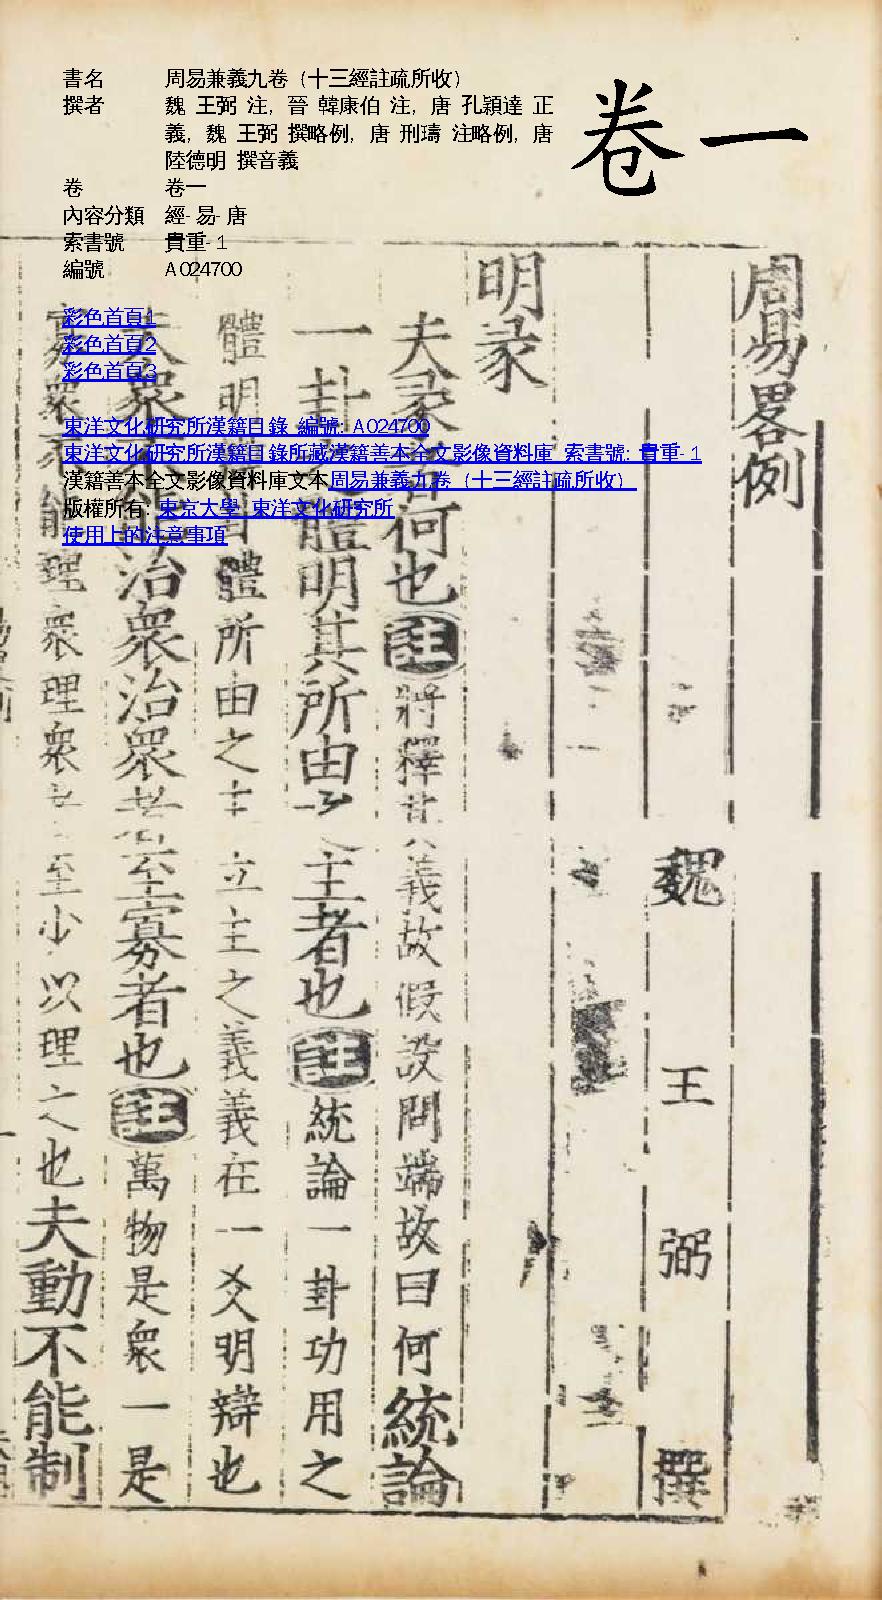 書名 周易兼義九卷 (十三經註疏所收)
撰者 魏 王弼 注, 晉 韓康伯 注, 唐 孔穎達 正
義, 魏 王弼 撰略例, 唐 刑璹 注略例, 唐
陸德明 撰音義
卷 卷一
內容分類 經-易-唐
索書號 貴重-1
編號 A024700
卷一
彩色首頁1
彩色首頁2
彩色首頁3
東洋文化研究所漢籍目錄 編號: A024700
東洋文化研究所漢籍目錄所藏漢籍善本全文影像資料庫 索書號: 貴重-1
漢籍善本全文影像資料庫文本周易兼義九卷 (十三經註疏所收)
版權所有: 東京大學 東洋文化研究所
使用上的注意事項
周易畧例
魏 王 弼 撰
明彖
夫彖者何也註將釋其義故假設問端故曰何統論
一卦之體明其所由之主者也註統論一卦功用之
體明體所由之主立主之義義在一爻明辯也
夫衆不能治衆治衆者至寡者也註萬物是衆一是
寡衆不能理衆理衆者至少以理之也夫動不能制